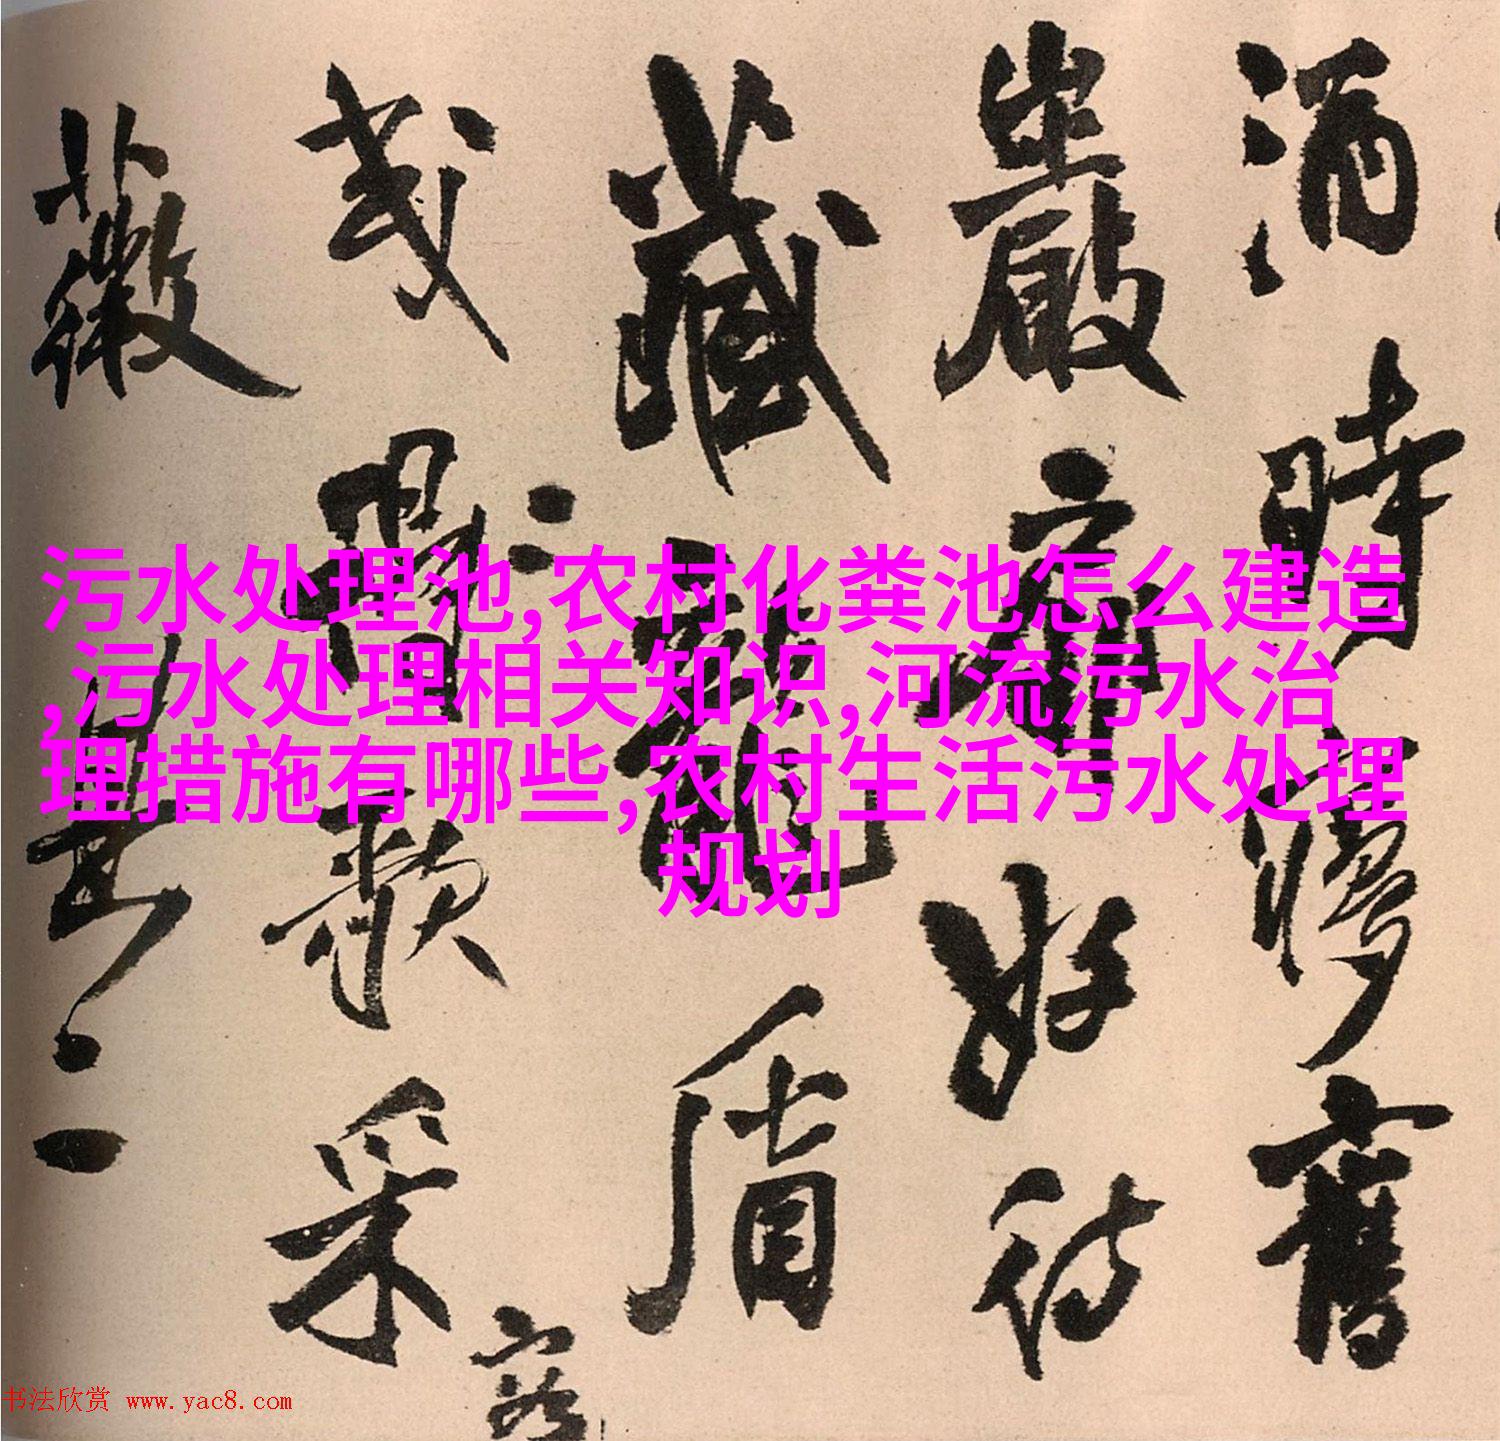 污水处理池,农村化粪池怎么建造
,污水处理相关知识,河流污水治
理措施有哪些,农村生活污水处理
规划
酒時舊
巖好待
藏龍盾
歌采
薇其二
书法欣赏 www.yac8.com